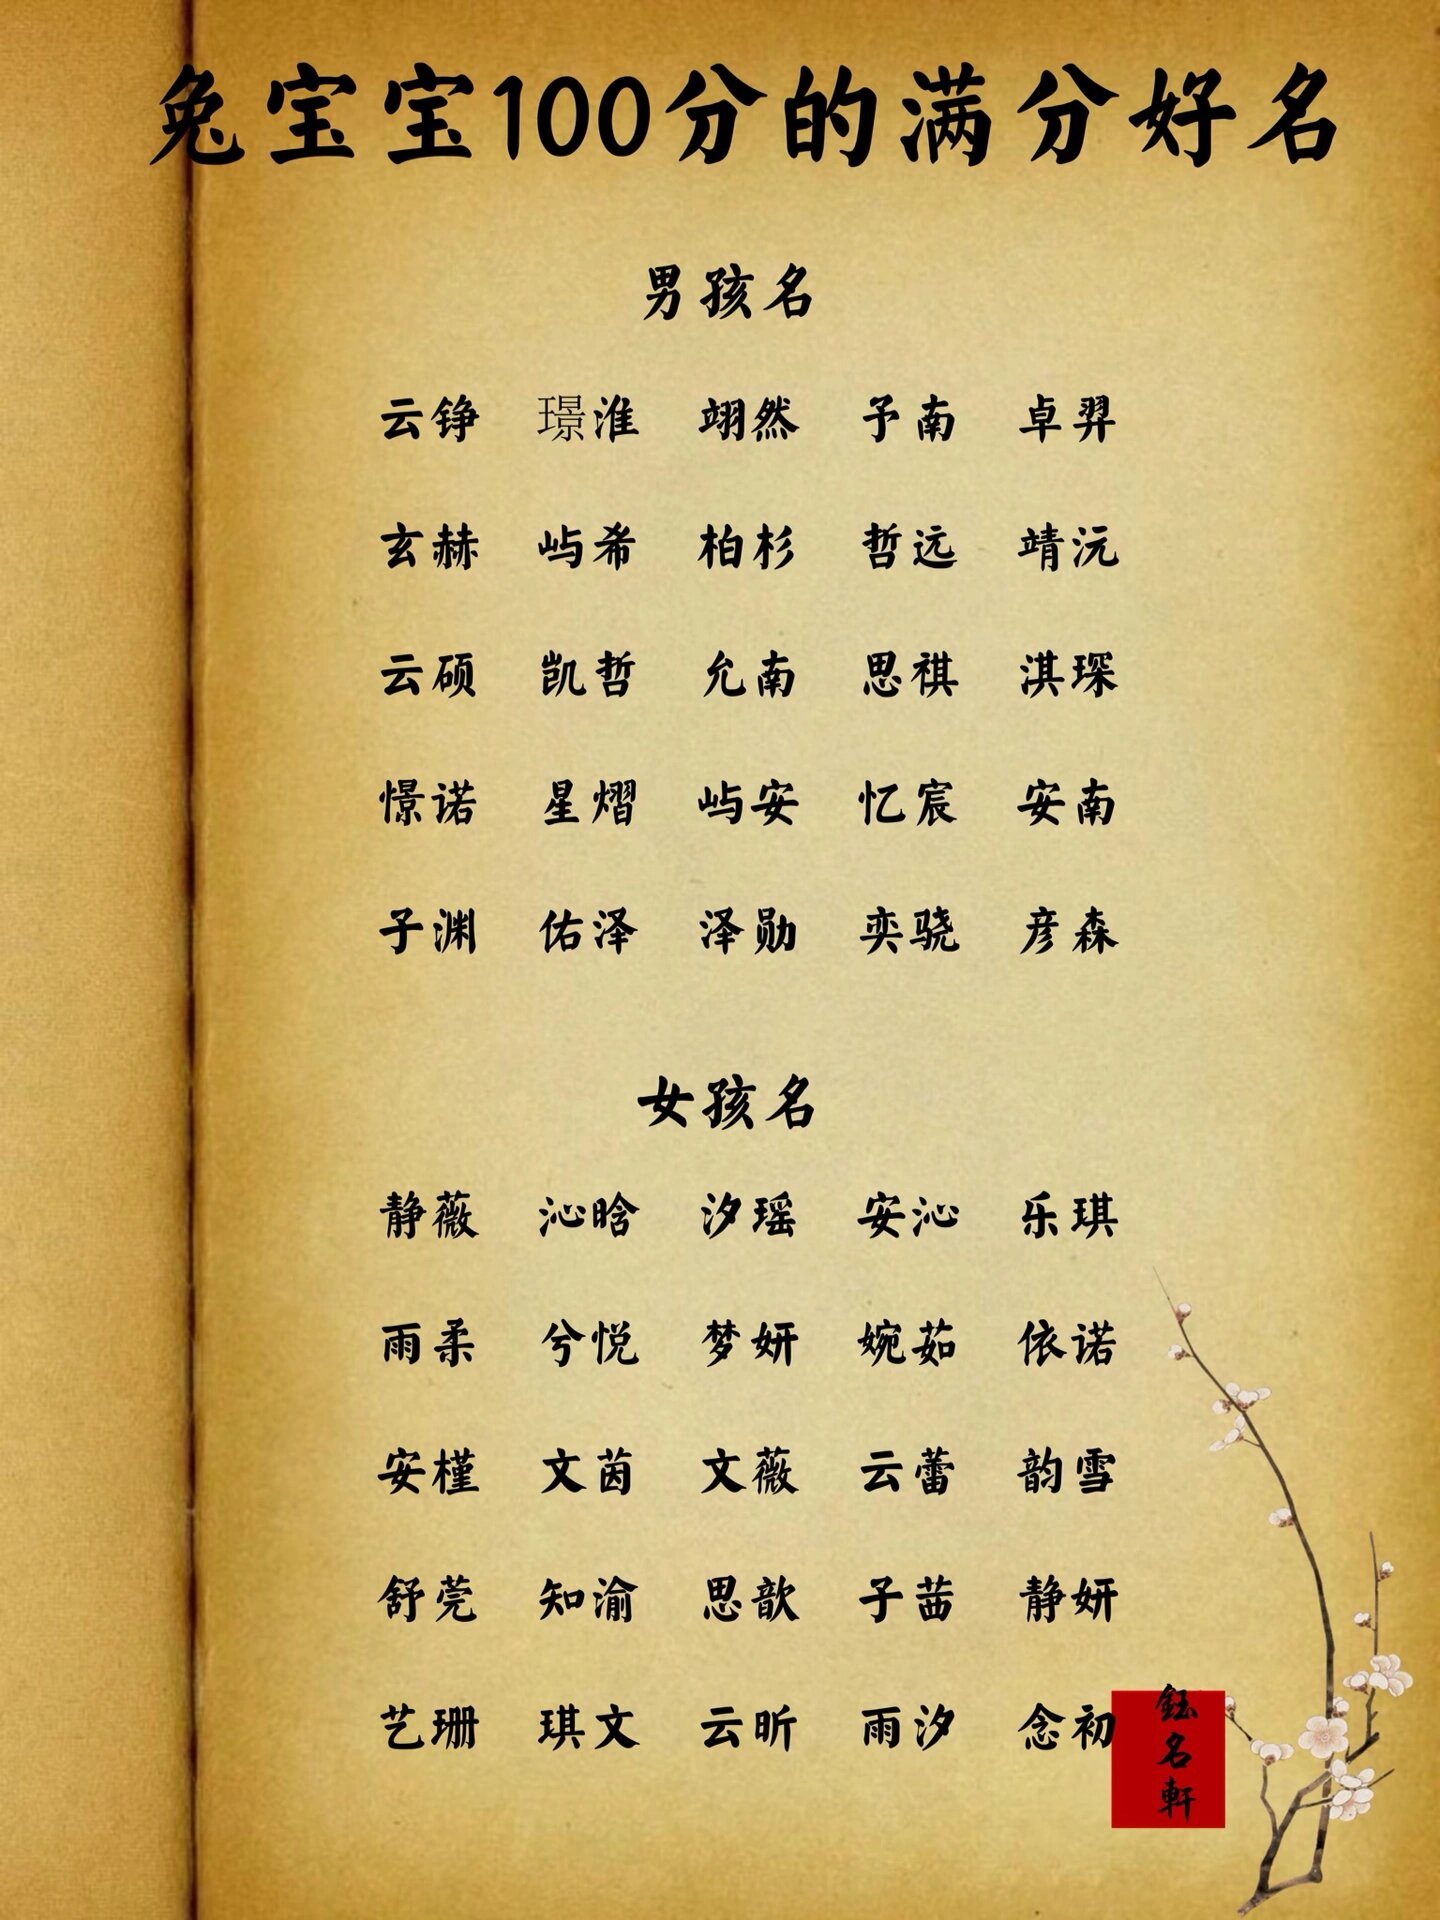 兔宝宝100分的满分好名
男孩名
云铮 璟淮 翊然 予南 卓羿
玄赫 屿希 柏杉 哲远 靖沅
云硕 凯哲 允南 思祺 淇琛
憬诺 星熠 屿安 忆宸 安南
子渊 佑泽 泽勋 奕骁 彦森
女孩名
静薇 沁晗 汐瑶 安沁 乐琪
雨柔 兮悦 梦妍 婉茹 依诺
安槿 文茵 文薇 云蕾 韵雪
舒莞 知渝 思歆 子茜 静妍
艺珊 琪文 云昕 雨汐 念初
鈺名軒